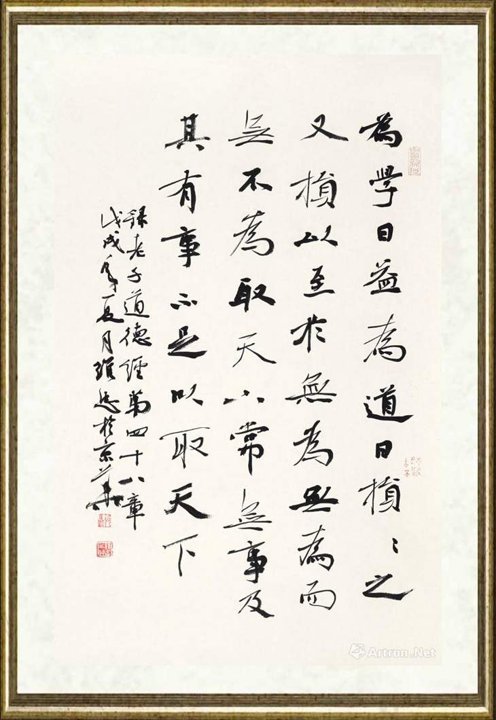 為學日益為道日損〻之
又損以至於無為無為而
無不為取天下常無事及
其有事不足以取天下
錄老子道德經第四十八章
戊戌年夏月於京華
Artron.Net